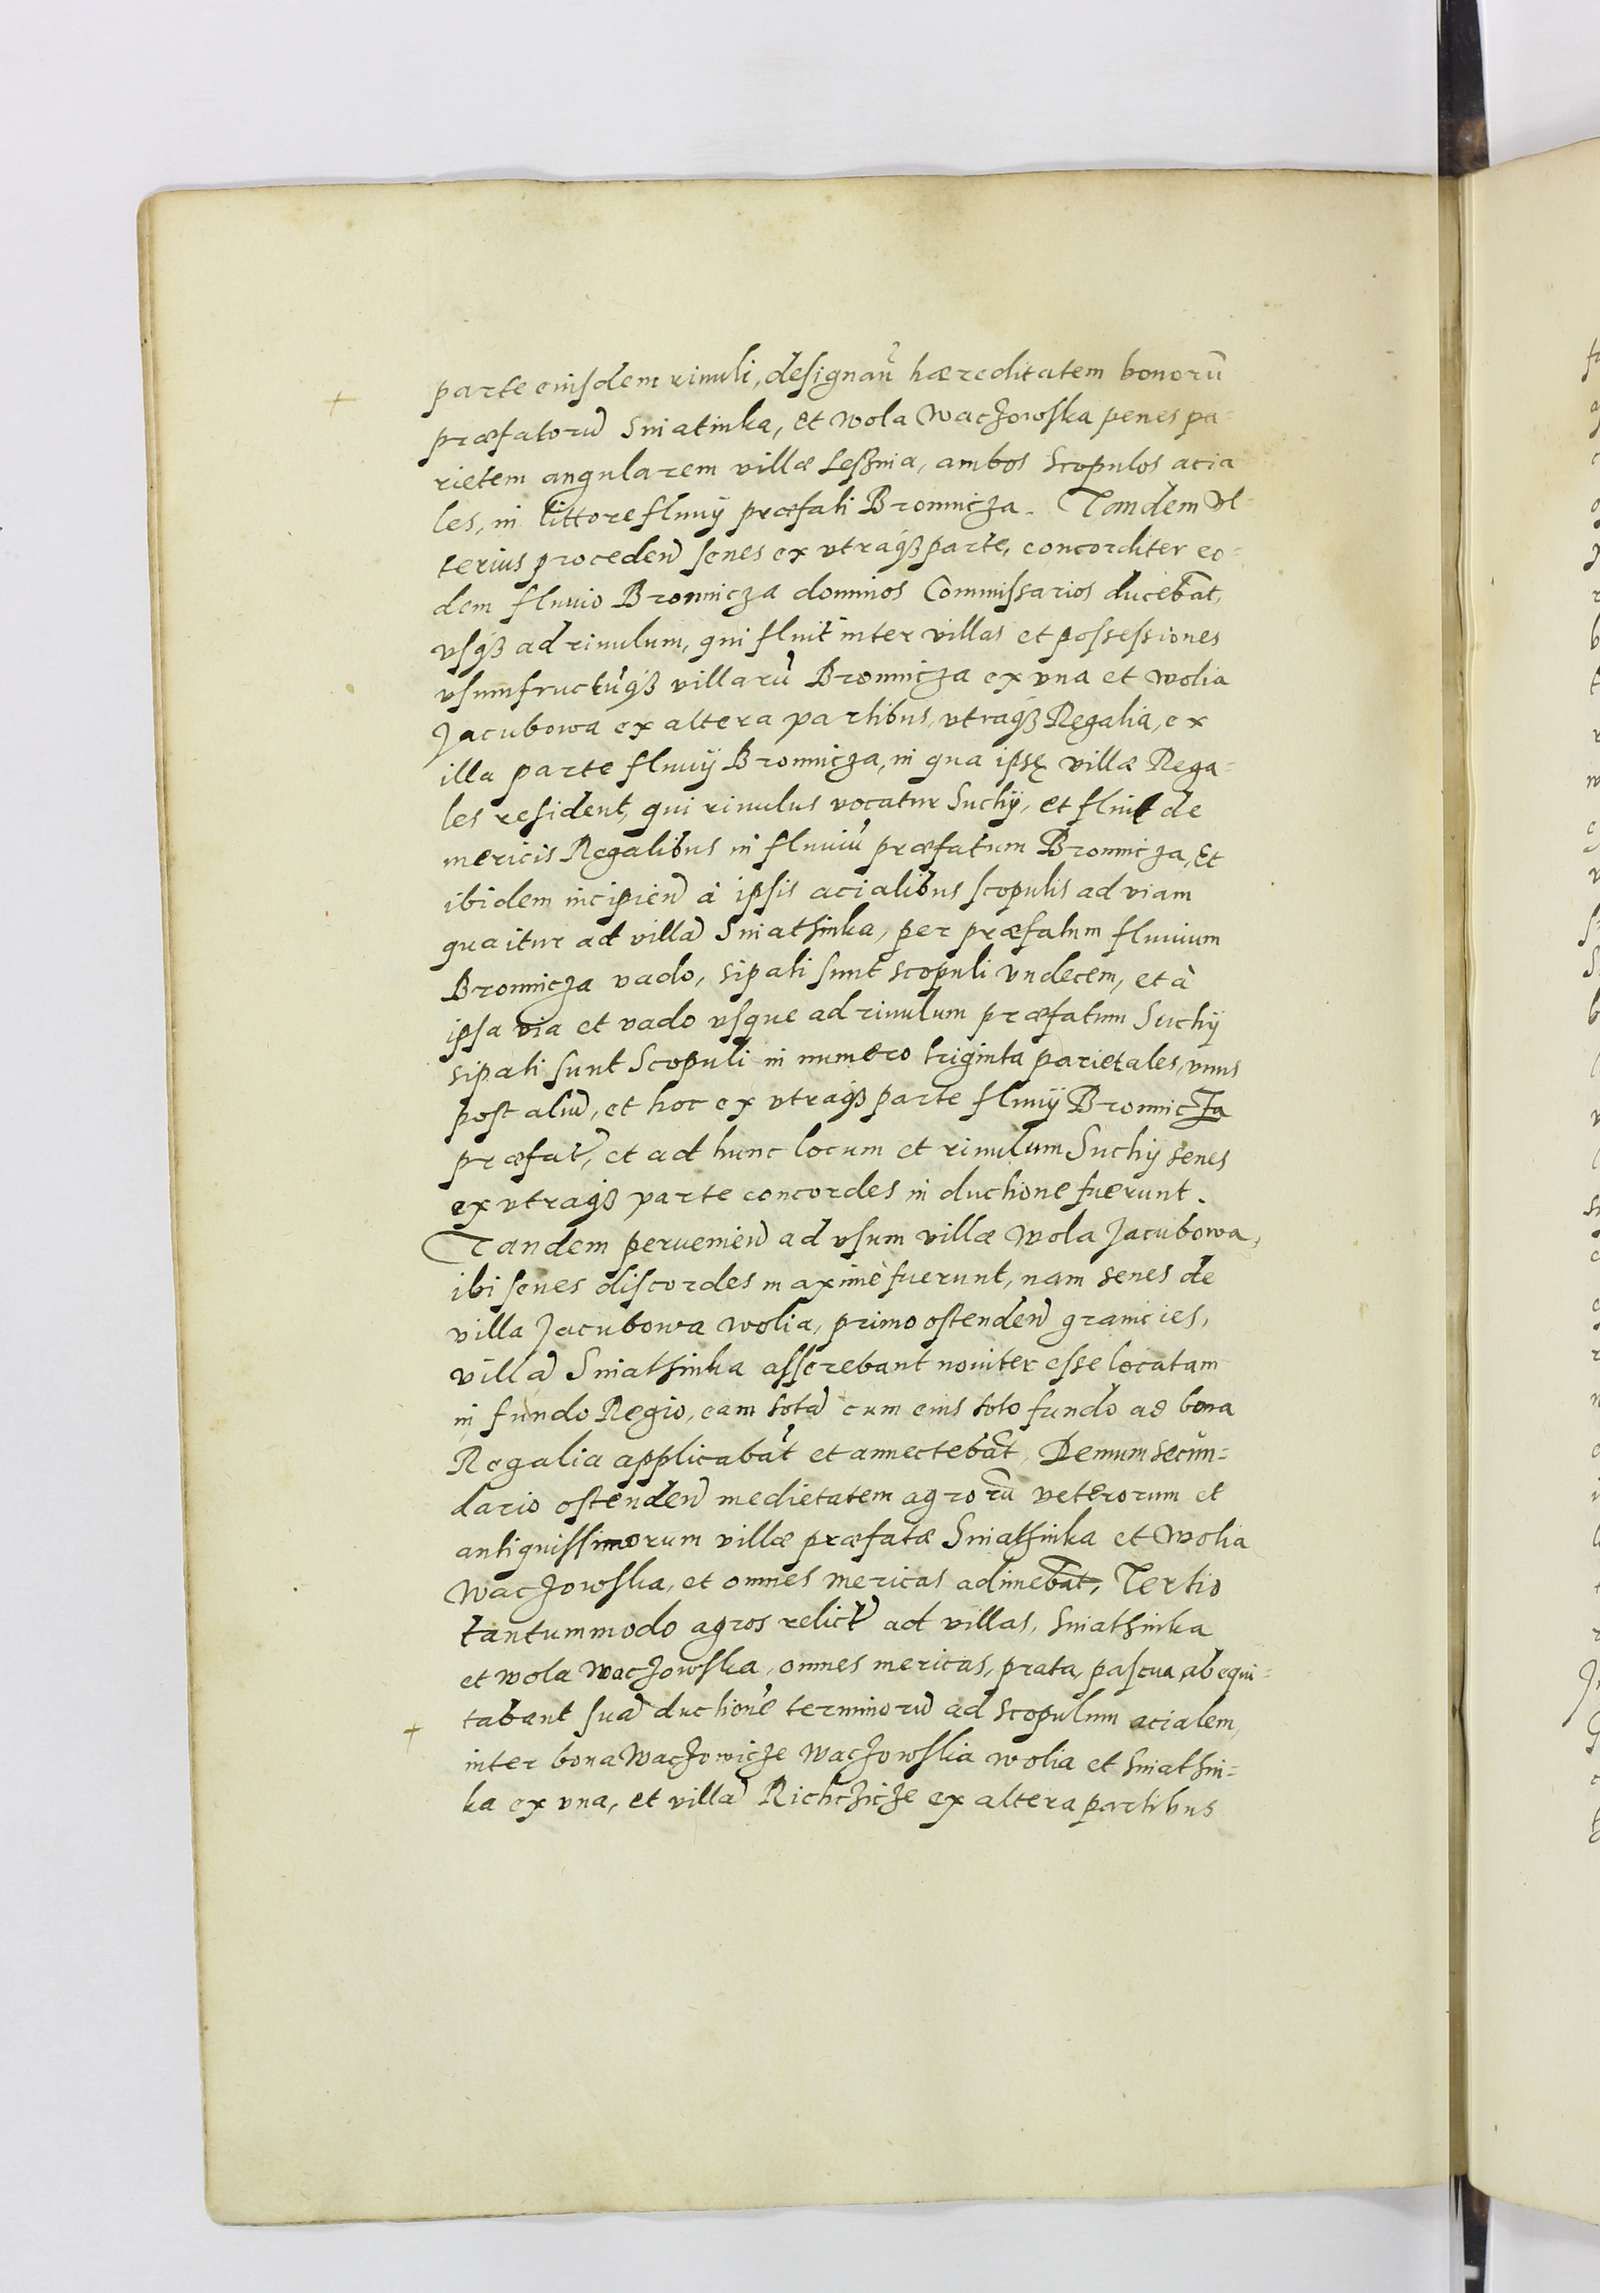 parte eiusdem riuuli, designań hæreditatem bonorū
præfatorū Sniatinka, et Wola Waczowska penes pa-
rietem angularem villæ Leßnia, ambos scopulos acia
les, in littore fluuij præfati Bronnicza. Tandem vl-
terius proceden̄ senes ex vtraqȝ parte, concorditer eo-
dem fluuio Bronnicza dominos Commissarios duceba̅t,
vsqȝ ad riuulum, qui fluit inter villas et possessiones
vsumfructūqȝ villarū Bronnicza ex vna et Wolia
Jacubowa ex altera partibus, vtraqȝ Regalia, ex
illa parte fluuij Bronnicza, in qua ipsę villæ Rega-
les resident, qui riuulus vocatur Suchÿ, et fluit de
mericis Regalibus in fluuiū præfatum Bronnicza, Et
ibidem incipien̄ à ipsis acialibus scopulis ad viam
qua itur ad villā Sniathinka, per præfatum fluuium
Bronnicza vado, sipati sunt scopuli vndecem, et à
ipsa via et vado vsque ad riuulum præfatum Suchÿ
sipati sunt Scopuli in numero triginta parietales, vnus
post aliū, et hoc ex vtraqȝ parte fluuÿ Bronnicza
præfat̄, et ad hunc locum et riuulum Suchÿ senes
ex vtraqȝ parte concordes in ductione fuerunt.
Tandem peruenien̄ ad vsum villæ Wola Jacubowa,
ibi senes discordes maximè fuerunt, nam senes de
villa Jacubowa Wolia, primo ostenden̄ granicies,
villā Sniathinka asserebant nouiter esse locatam
in fundo Regio, eam totā cum eius toto fundo ad bona
Regalia applicabāt et annecteba̅t, Demum secun-
dario ostenden̄ medietatem agrorū veterorum et
antiquissimorum villæ præfatæ Sniathinka et Wolia
Waczowska, et omnes mericas adimeba̅t, Tertio
tantummodo agros relict̄ ad villas, Sniathinka
et Wola Waczowska, omnes mericas, prata, pascua, abequi-
tabant suā ductionē terminorū ad scopulum acialem,
inter bona Waczowicze Waczowskia wolia et Sniathin-
ka ex vna, et villā Richczicze ex altera partibus